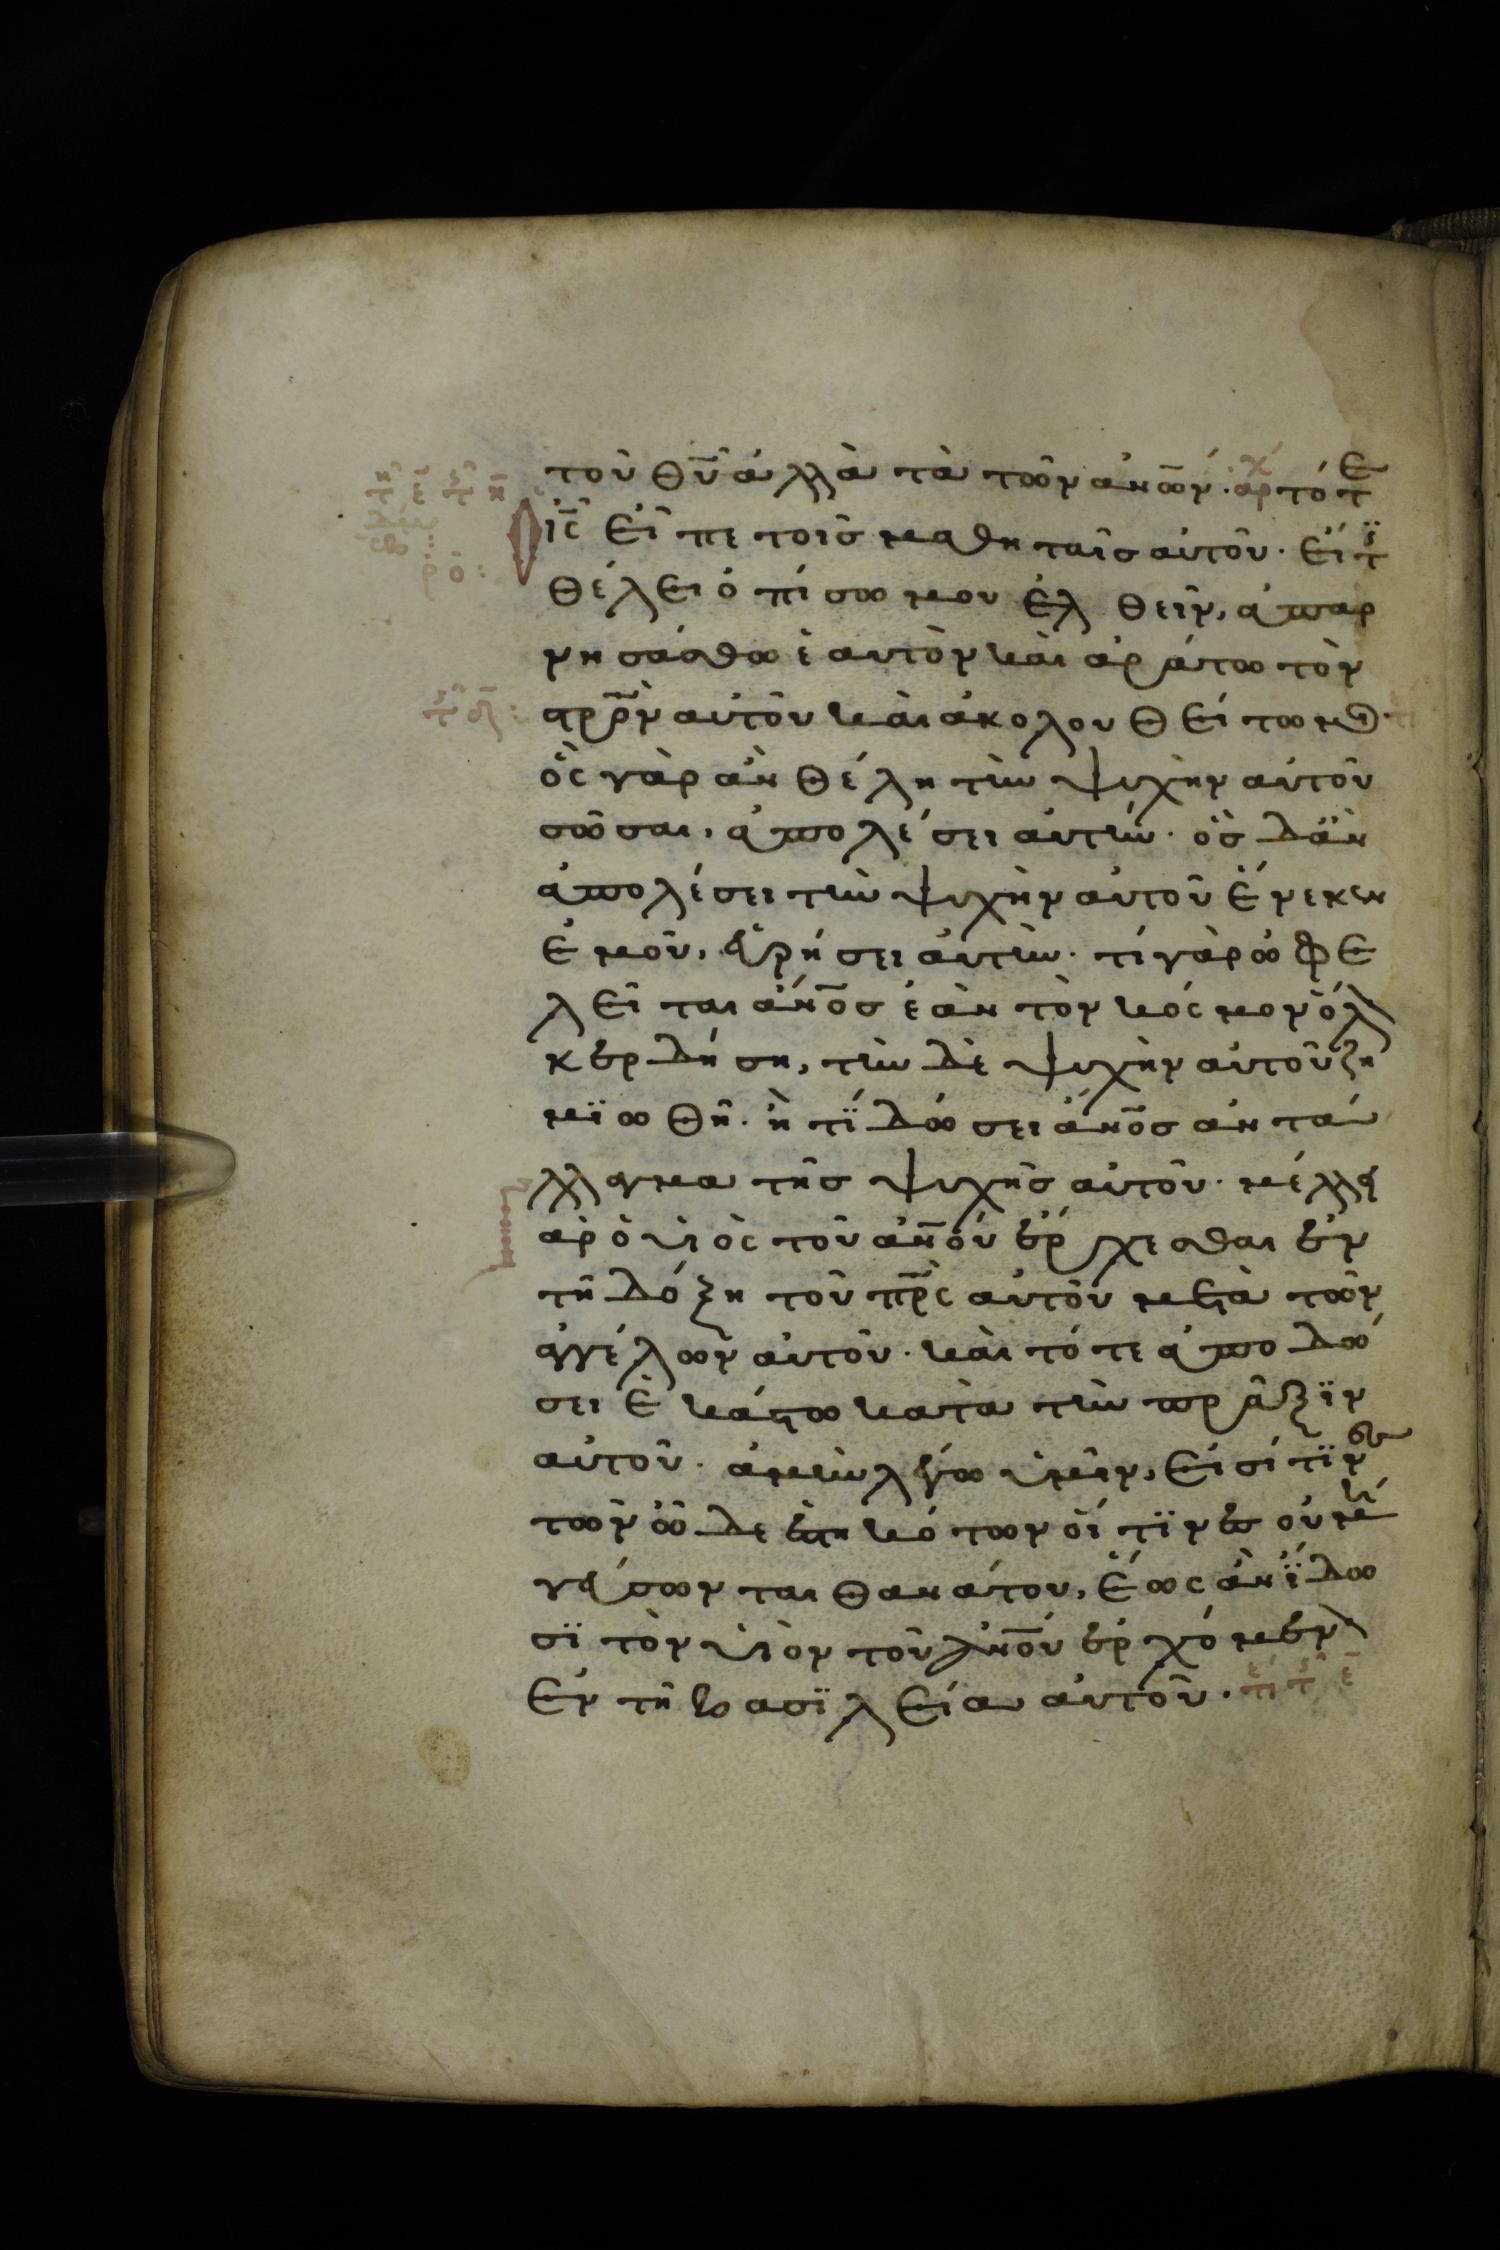 τοῦ θῦ ἀλλὰ τὰ τῶν ἀνων· ἀρχ τότε
ις εἶπε τοῖσ μαθηταῖσ αὐτοῦ· εἴ τϊσ
θέλει ὀπίσω μου ἐλθεῖν, ἀπαρ
νησάσθω ἑαυτὸν καὶ ἀράτω τὸν
στρὸν αὐτοῦ καὶ ἀκολουθείτω μοι·
ὃς γὰρ ἂν θέλη τὴν ψυχὴν αὐτοῦ
σῶσαι, ἀπολέσει αὐτήν· ὃσ δ ἂν
ἀπολέσει τὴν ψυχὴν αὐτοῦ ἕνεκεν
ἐμοῦ, εὑρήσει αὐτὴν· τί γὰρ ὠφε
λεῖται ἄνοσ ἐὰν τὸν κόσμον ὅλ
κερδήση, τὴν δὲ ψυχὴν αὐτοῦ ζη
μϊωθῆ· ἢ τί δώσει ἄνοσ ἀντά
λλαγμα τῆσ ψυχῆσ αὐτοῦ· μέλλει γ
αρ ὁ υἱὸς τοῦ ἀνου ἔρχεσθαι ἐν
τῆ δόξη τοῦ πρς αὐτοῦ μετὰ τῶν
ἀγγέλων αὐτοῦ· καὶ τότε ἀποδώ
σει ἑκάστω κατὰ τὴν πρᾶξϊν
αὐτοῦ· ἀμὴν λέγω ὑμῖν, εἰσί τϊνεσ
τῶν ὧδε ἑστηκότων οἵτϊνεσ οὐ μὴ
γεύσωνται θανάτου, ἕως ἂν ἴδω
σϊ τὸν υἱὸν τοῦ ἀνου ἐρχόμεν
ἐν τῆ βασϊλεία αὐτοῦ·